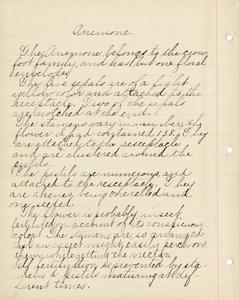 Anemone.
The Anemone belongs to the crow
foot family, and has but one floral
envelope.
The five sepals are of a light
yellow color and attached to the
receptacle. Two of the sepals
are notched at the end.
The stamens vary in number the
flower I had contained 138. They
are attached to the receptacle
and are clustered around the
pistils.
The pistils are numerous and
attached to the receptacle. They
are achenes, being one celled and
one seeded.
The flower is probably insect
fertilized on account of its conspicuous
color. The stamens are so arranged
that an insect might easily perch on
them, while getting the nectar.
Self fertilization is prevented by stig-
mas & pistils maturing at dif-
ferent times.